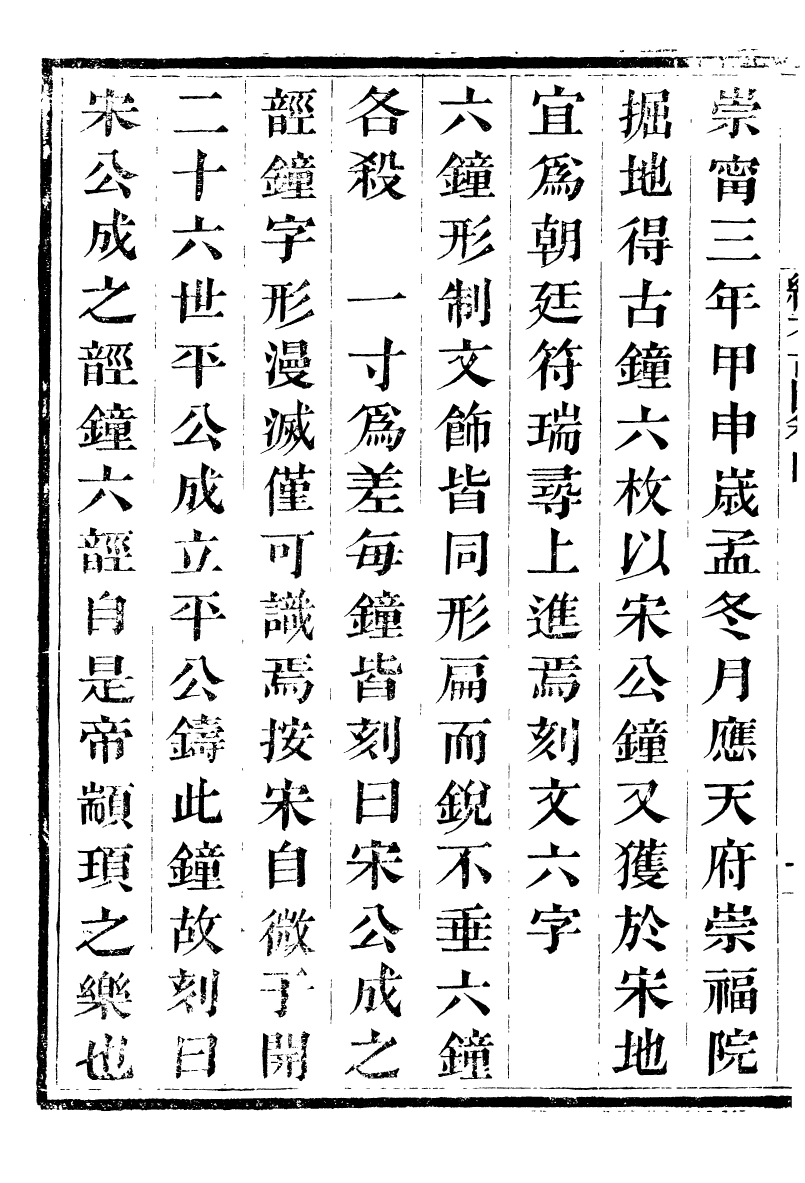 崇甯三年甲申歲孟冬月應天府崇福院
掘地得古鐘六枚以宋公鐘又獲於宋地
宜爲朝廷符瑞尋上進焉刻文六字
六鐘形制文飾皆同形扁而銳不垂六鐘
各殺　一寸爲差每鐘皆刻曰宋公成之
䪫鐘字形漫滅僅可識焉按宋自微子開
二十六世平公成立平公鑄此鐘故刻曰
宋公成之䪫鐘六䪫自是帝顓頊之樂也